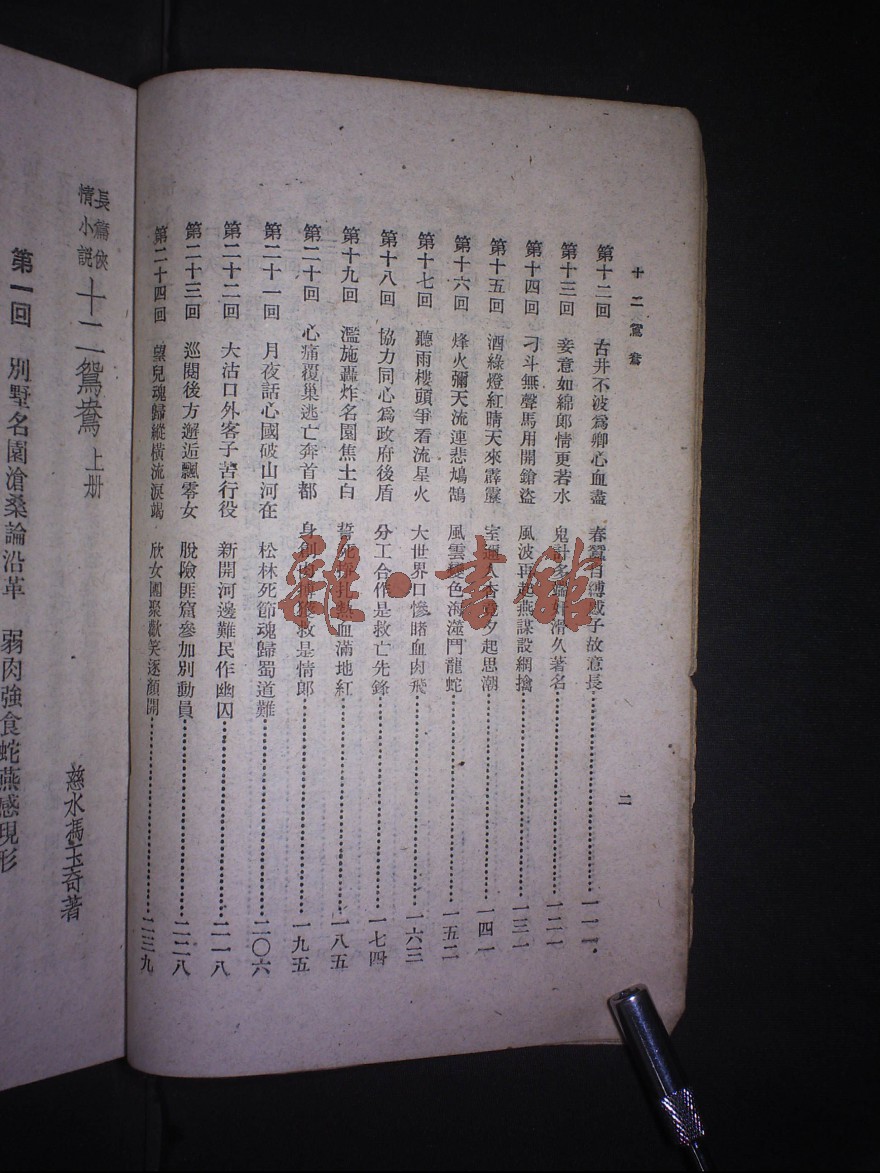 十二鴛鴦
第十二回 古井不波爲卿心血盡 春蠶自縛感子故意長 一一一
第十三回 妾意如綿郎情更若水 鬼計多端奸滑久著名 一二一
第十四回 刁斗無聲馬用開鎗盜 風波再起燕謀設網擒 一三一
第十五回 酒綠燈紅晴天來霹靂 室邇人杳 夕起思潮 一四一
第十六回 烽火彌天流連悲鳩鵠 風雲變色海澨鬥龍蛇 一五二
第十七回 聽雨樓頭爭看流星火 大世界口慘睹血肉飛 一六三
第十八回 協力同心爲政府後盾 分工合作是救亡先鋒 一七四
第十九回 濫施轟炸名園焦土白 誓死掙扎熱血滿地紅 一八五
第二十回 心痛覆巢逃亡奔首都 身創肉搏獲救是情郎 一九五
第二十一回 月夜話心國破山河在 松林死節魂歸蜀道難 二〇六
第二十二回 大沽口外客子苦行役 新開河邊難民作幽囚 二一八
第二十三回 巡閱後方邂逅飄零女 脫險匪窟參加別動員 二二八
第二十四回 望兒魂歸縱橫流淚竭 欣女團聚歡笑逐顏開 二三九
二
長篇俠情小說 十二鴛鴦 上册
慈水馮玉奇著
第一回 別墅名園滄桑論沿革 弱肉強食蛇燕感現形
雜·書館